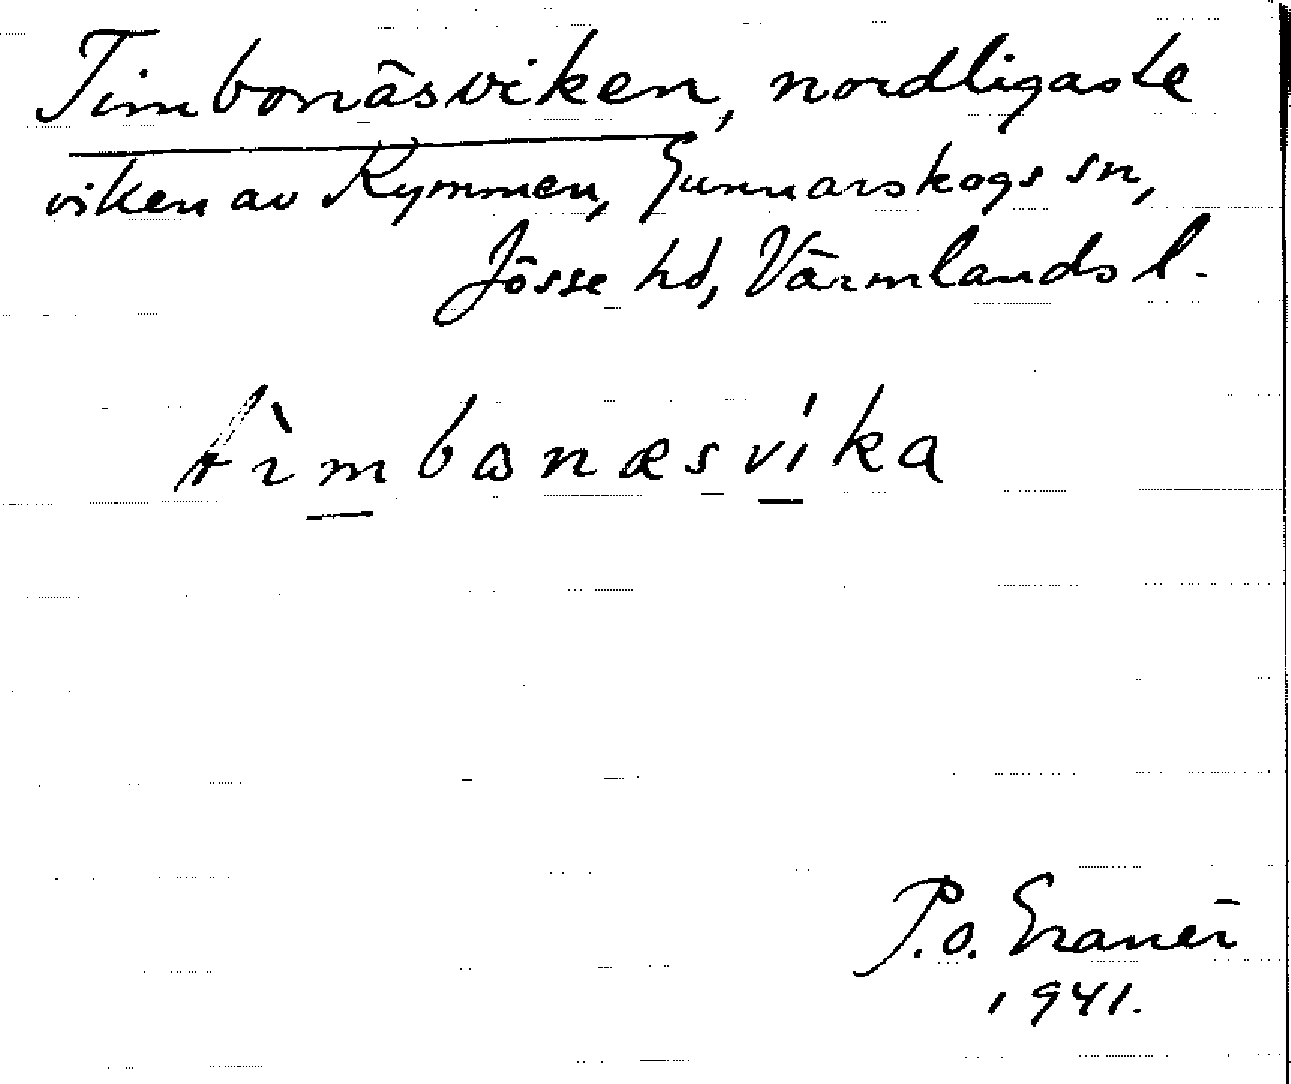 Timbonäsviken, nordligaste
viken av Kymmen, Gunnarskogs sn,
Jösse hd, Värmlands l.
tìmbonæsvíka
P.o. Granér
1941.